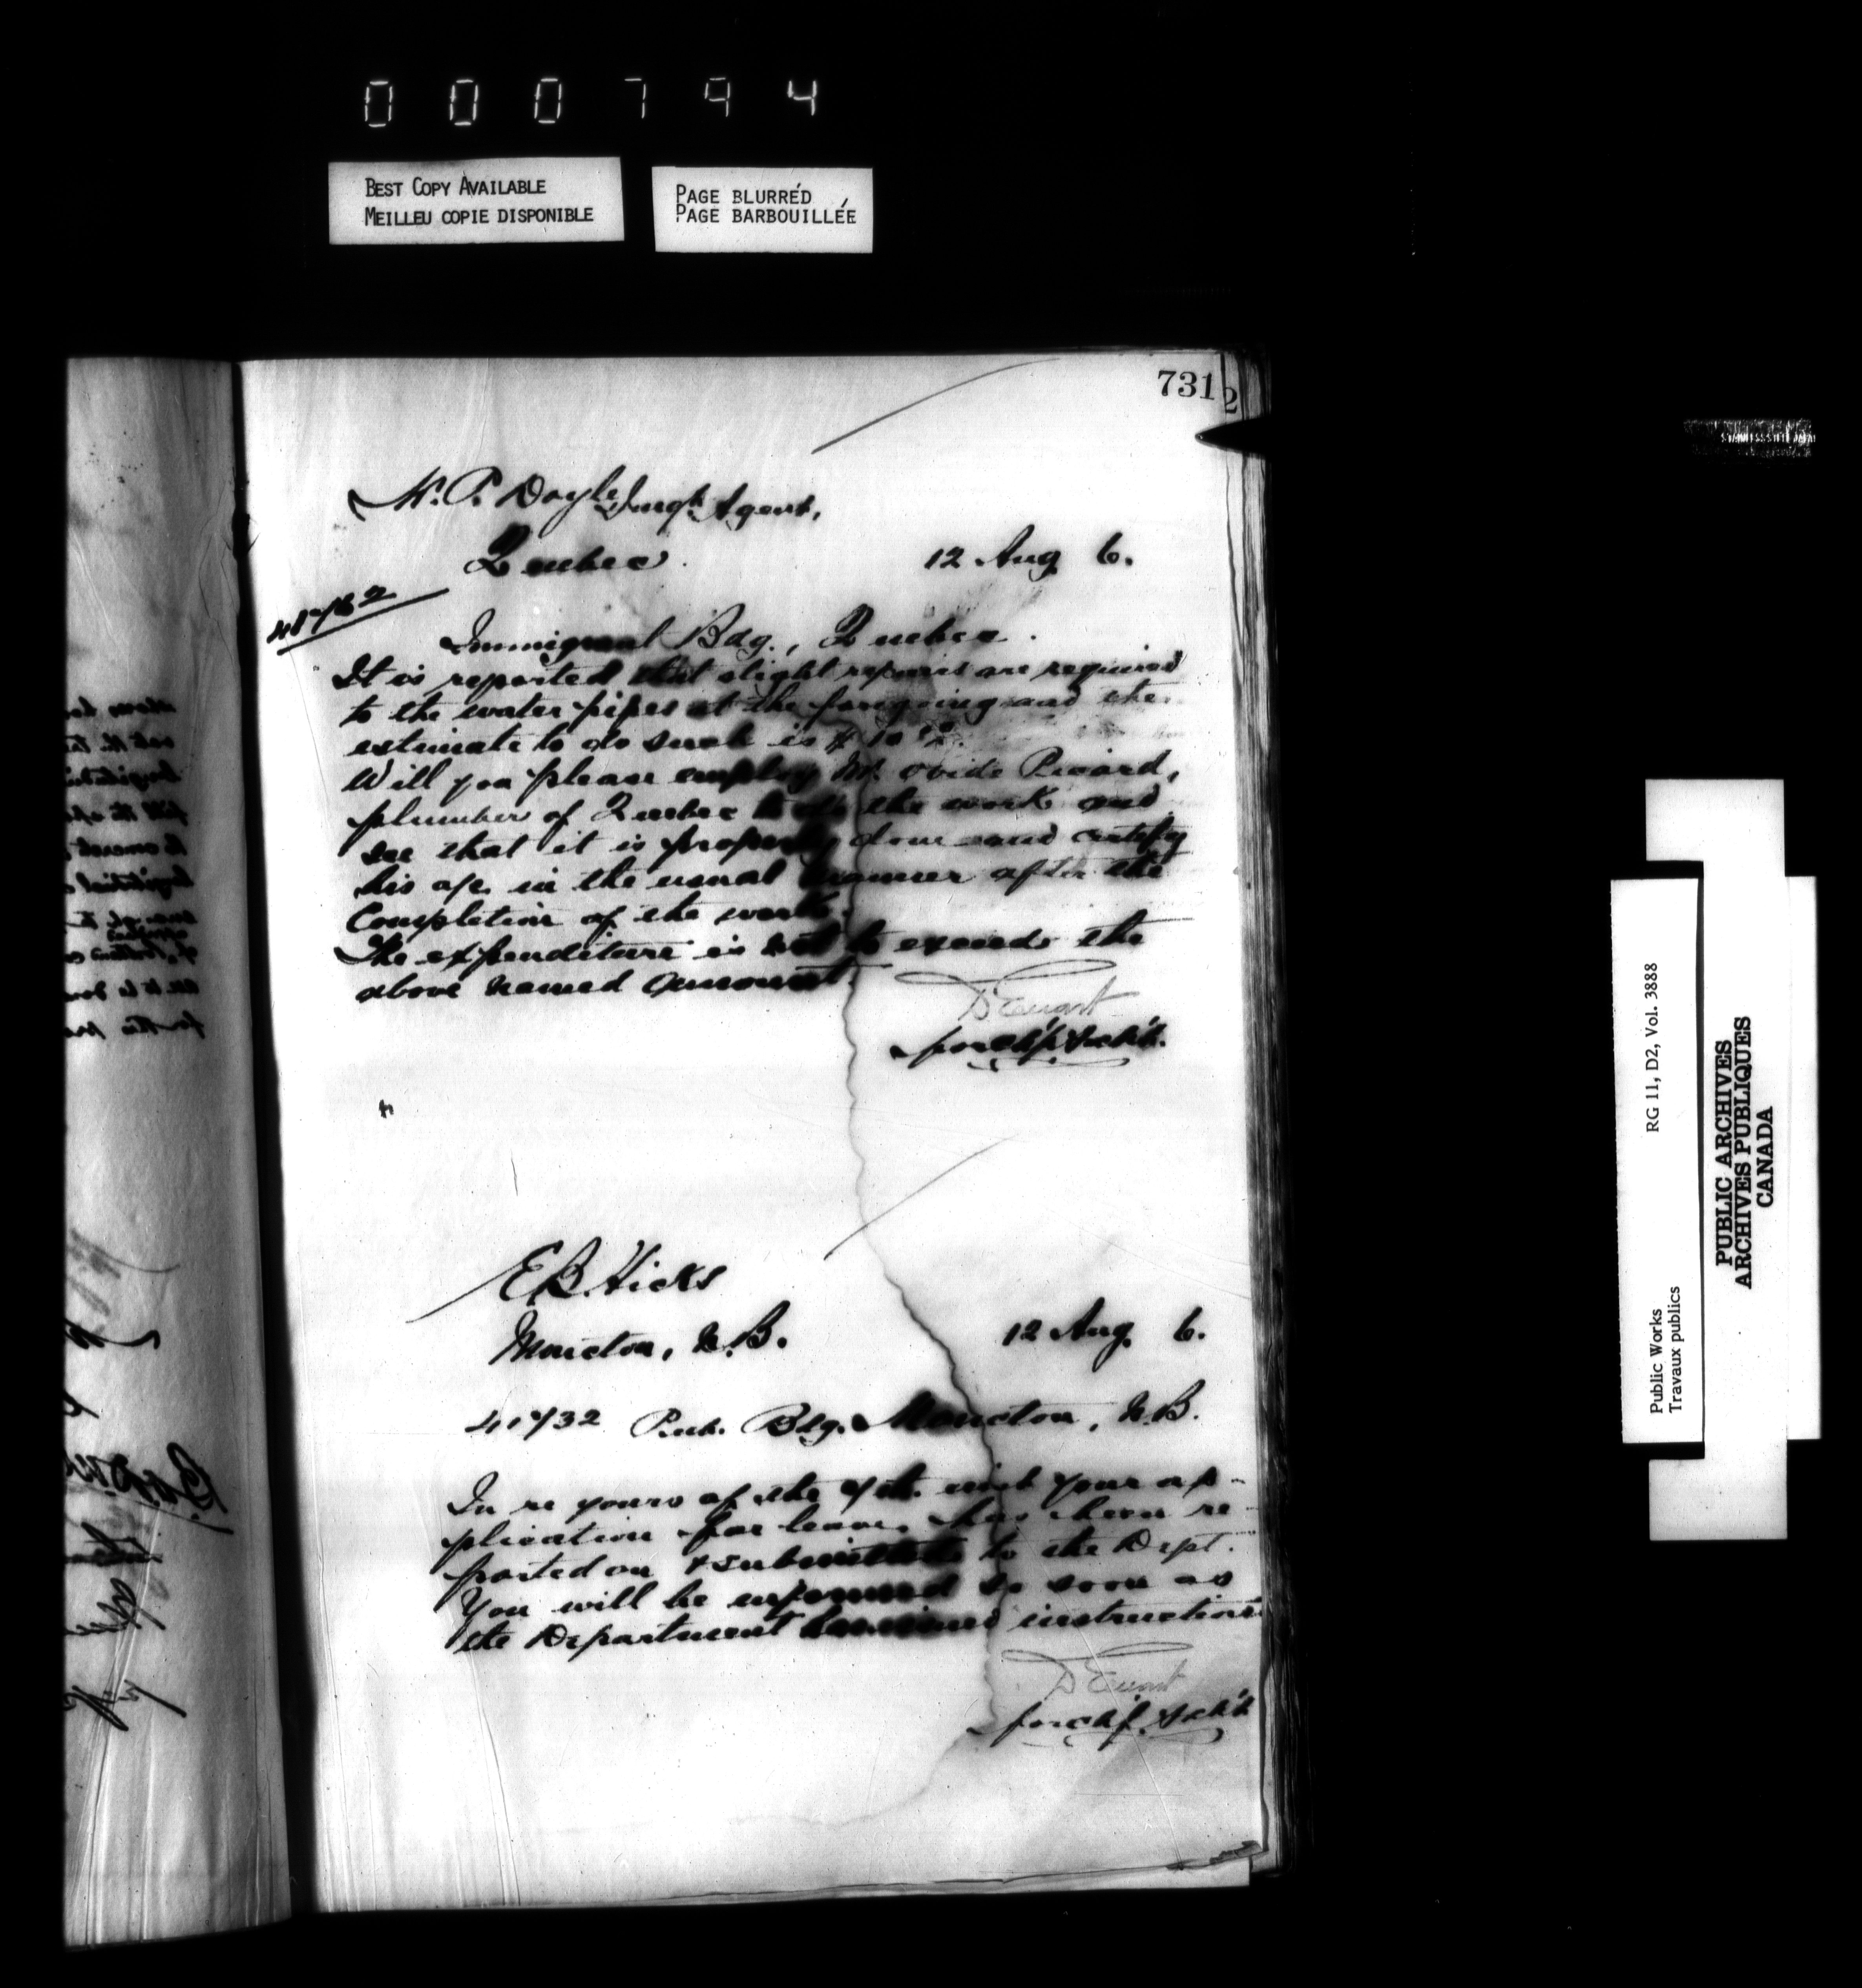 000794
BEST COPY AVAILABLE
MEILLEU COPIE DISPONIBLE
PAGE BLURRÉD
PAGE BARBOUILLÉE
731
2
P. Doyle, Imgt. Agent,
Quebec. 12 Aug 6.
Immigrant Bdg., Quebec.
It is reported that slight repairs are required
to the water pipes at the foregoing and the
estimate to do such is $10
Will you please employ Mr. Ovide Picard,
plumber of Quebec to do the work and
see that it is properly done and certify
his a/c in the usual manner after the
Completion of the work.
The expenditure is not to exceed the
above named amount.
D Ewart
for ch'f Arch't.
E B Hicks
Moncton, N.B. 12 Aug. 6.
41732 Pub. Bdg. Moncton, N.B.
In re yours of the 9th. inst your ap-
plication for leave has been re-
ported on & submitted to the Dept.
You will be informed so soon as
the Department instructions
D Ewart
for ch'f. Arch't
Public Works RG 11, D2, Vol. 3888
Travaux publics
PUBLIC ARCHIVES
ARCHIVES PUBLIQUES
CANADA